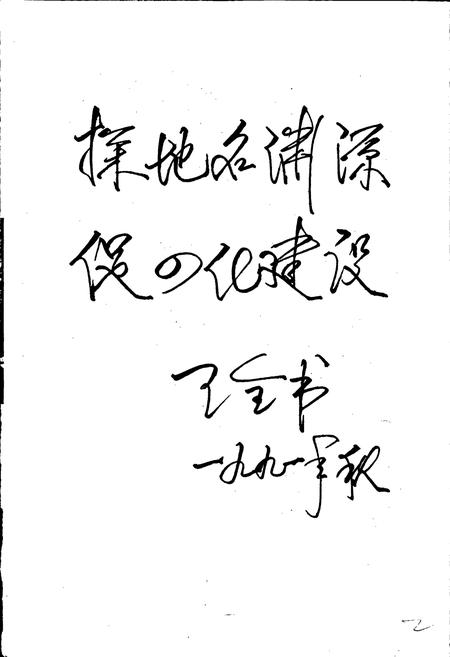 探地名渊源
促四化建设
王全书
一九九一年秋